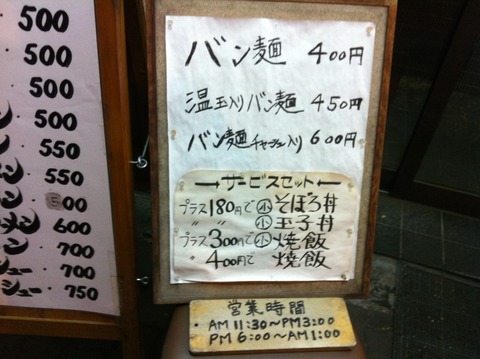 500
500
500
500
550
ン 550
ン 500
メン 600
ン 700
シュー 700
シュー 750
バン麺 400円
温玉入りバン麺 450円
バン麺チャーシュー入り 600円
サービスセット
プラス180円で小そぼろ丼
〃 〃 小玉子丼
プラス300円で小焼飯
〃 400円で 焼飯
営業時間
AM 11:30~PM 3:00
PM 6:00~AM 1:00